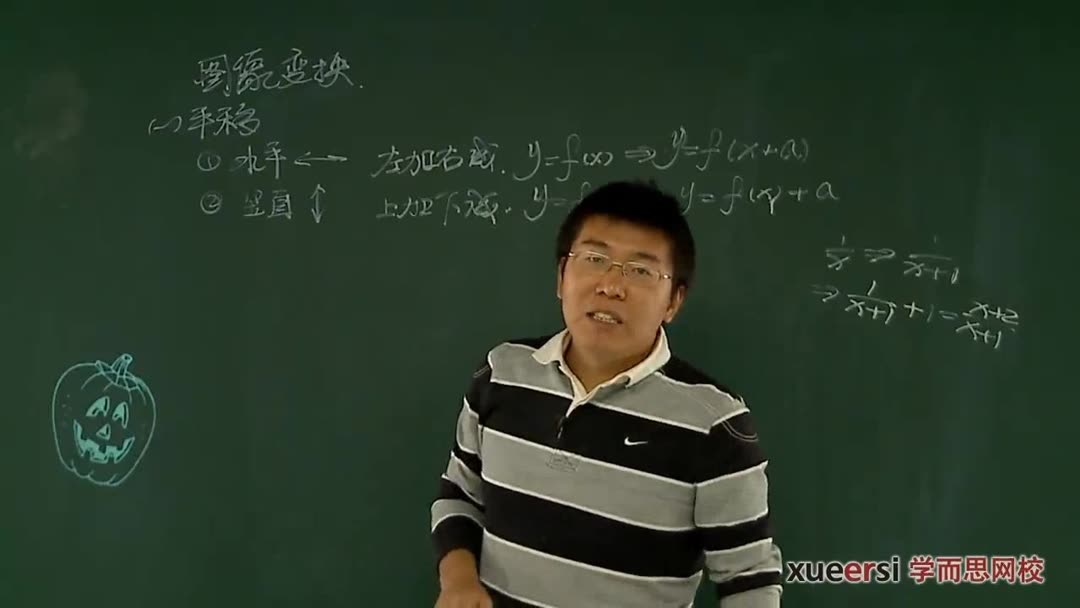 图像变换.
(一)平移
① 水平 ↔ 左加右减. y=f(x) ⇒ y=f(x+a)
② 竖直 ↕ 上加下减. y=f y=f(x)+a
1/x ⇒ 1/(x+1)
⇒ 1/(x+1) +1= (x+2)/(x+1)
xueersi 学而思网校